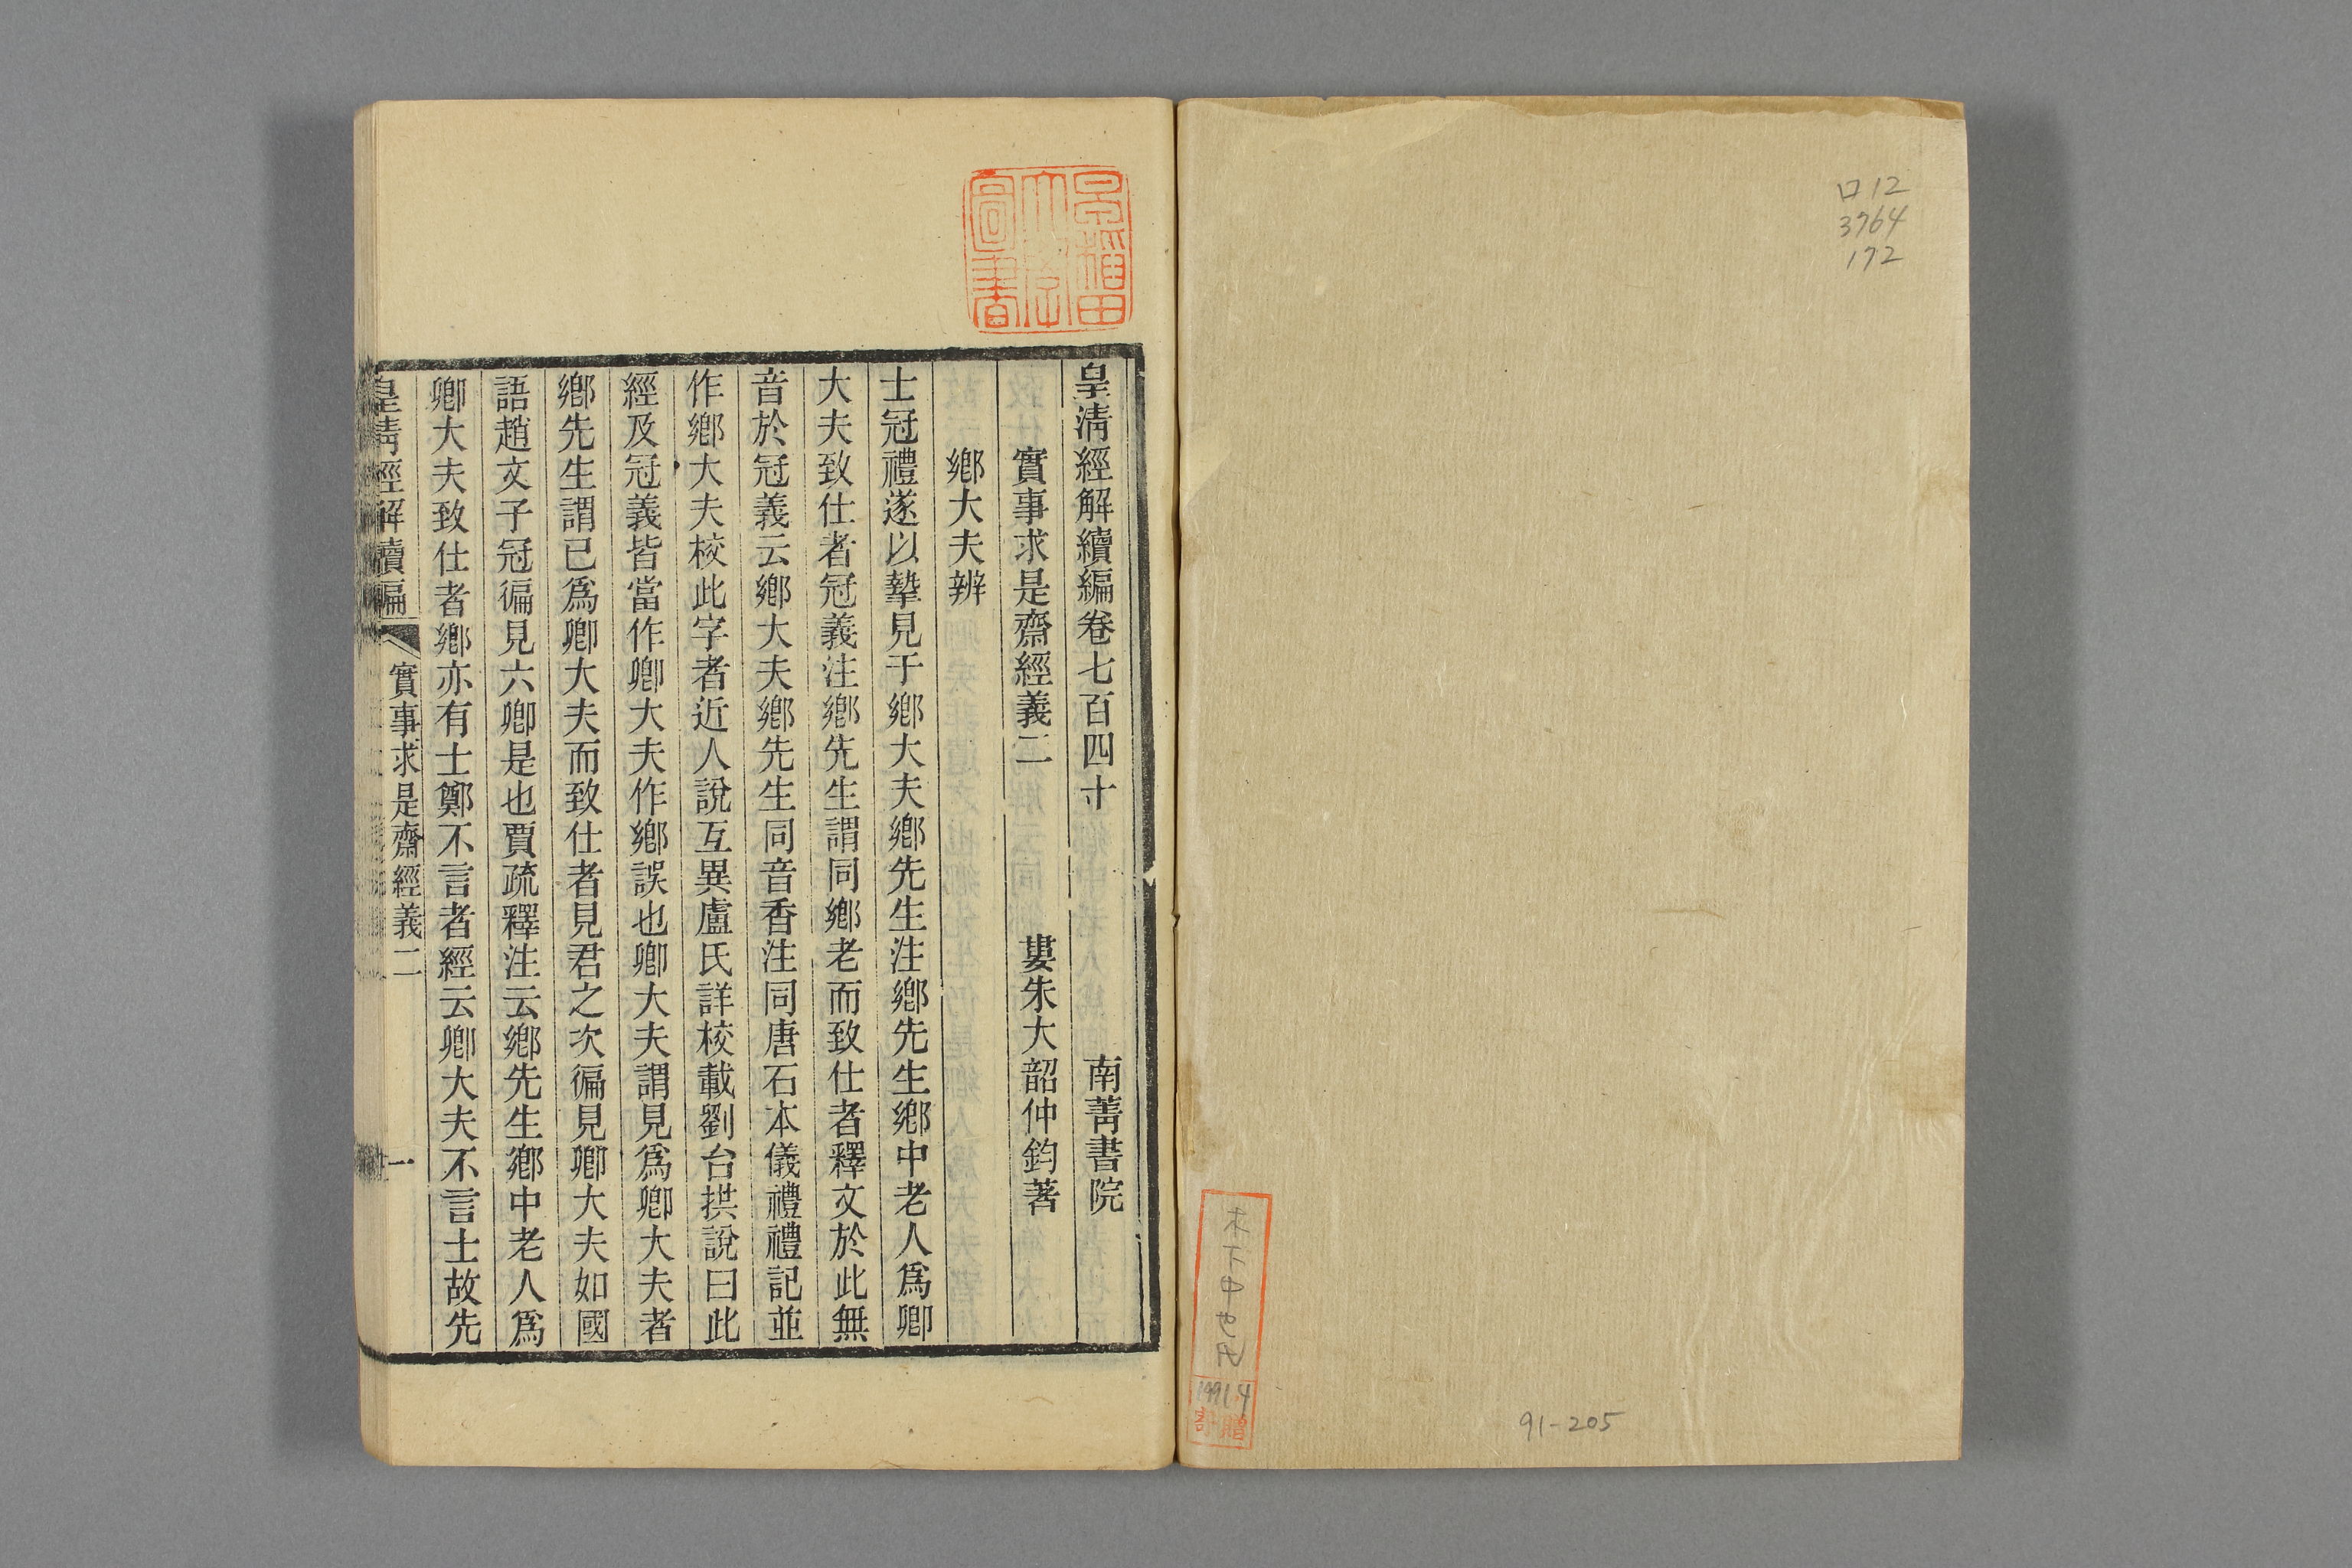 口12
3764
172
木下中也氏
1991.4
寄贈
91-205
早稲田大學圖書
皇清經解續編卷七百四十 南菁書院
實事求是齋經義二 婁朱大韶仲鈞著
鄉大夫辨
士冠禮遂以摯見于鄉大夫鄉先生注鄉先生鄉中老人爲卿
大夫致仕者冠義注鄉先生謂同鄉老而致仕者釋文於此無
音於冠義云鄉大夫鄉先生同音香注同唐石本儀禮禮記並
作鄉大夫校此字者近人說互異盧氏詳校載劉台拱說曰此
經及冠義皆當作卿大夫作鄉誤也卿大夫謂見爲卿大夫者
鄉先生謂已爲卿大夫而致仕者見君之次徧見卿大夫如國
語趙文子冠徧見六卿是也賈疏釋注云鄉先生鄉中老人爲
卿大夫致仕者鄉亦有士鄭不言者經云卿大夫不言士故先
皇清經解續編 實事求是齋經義二 一